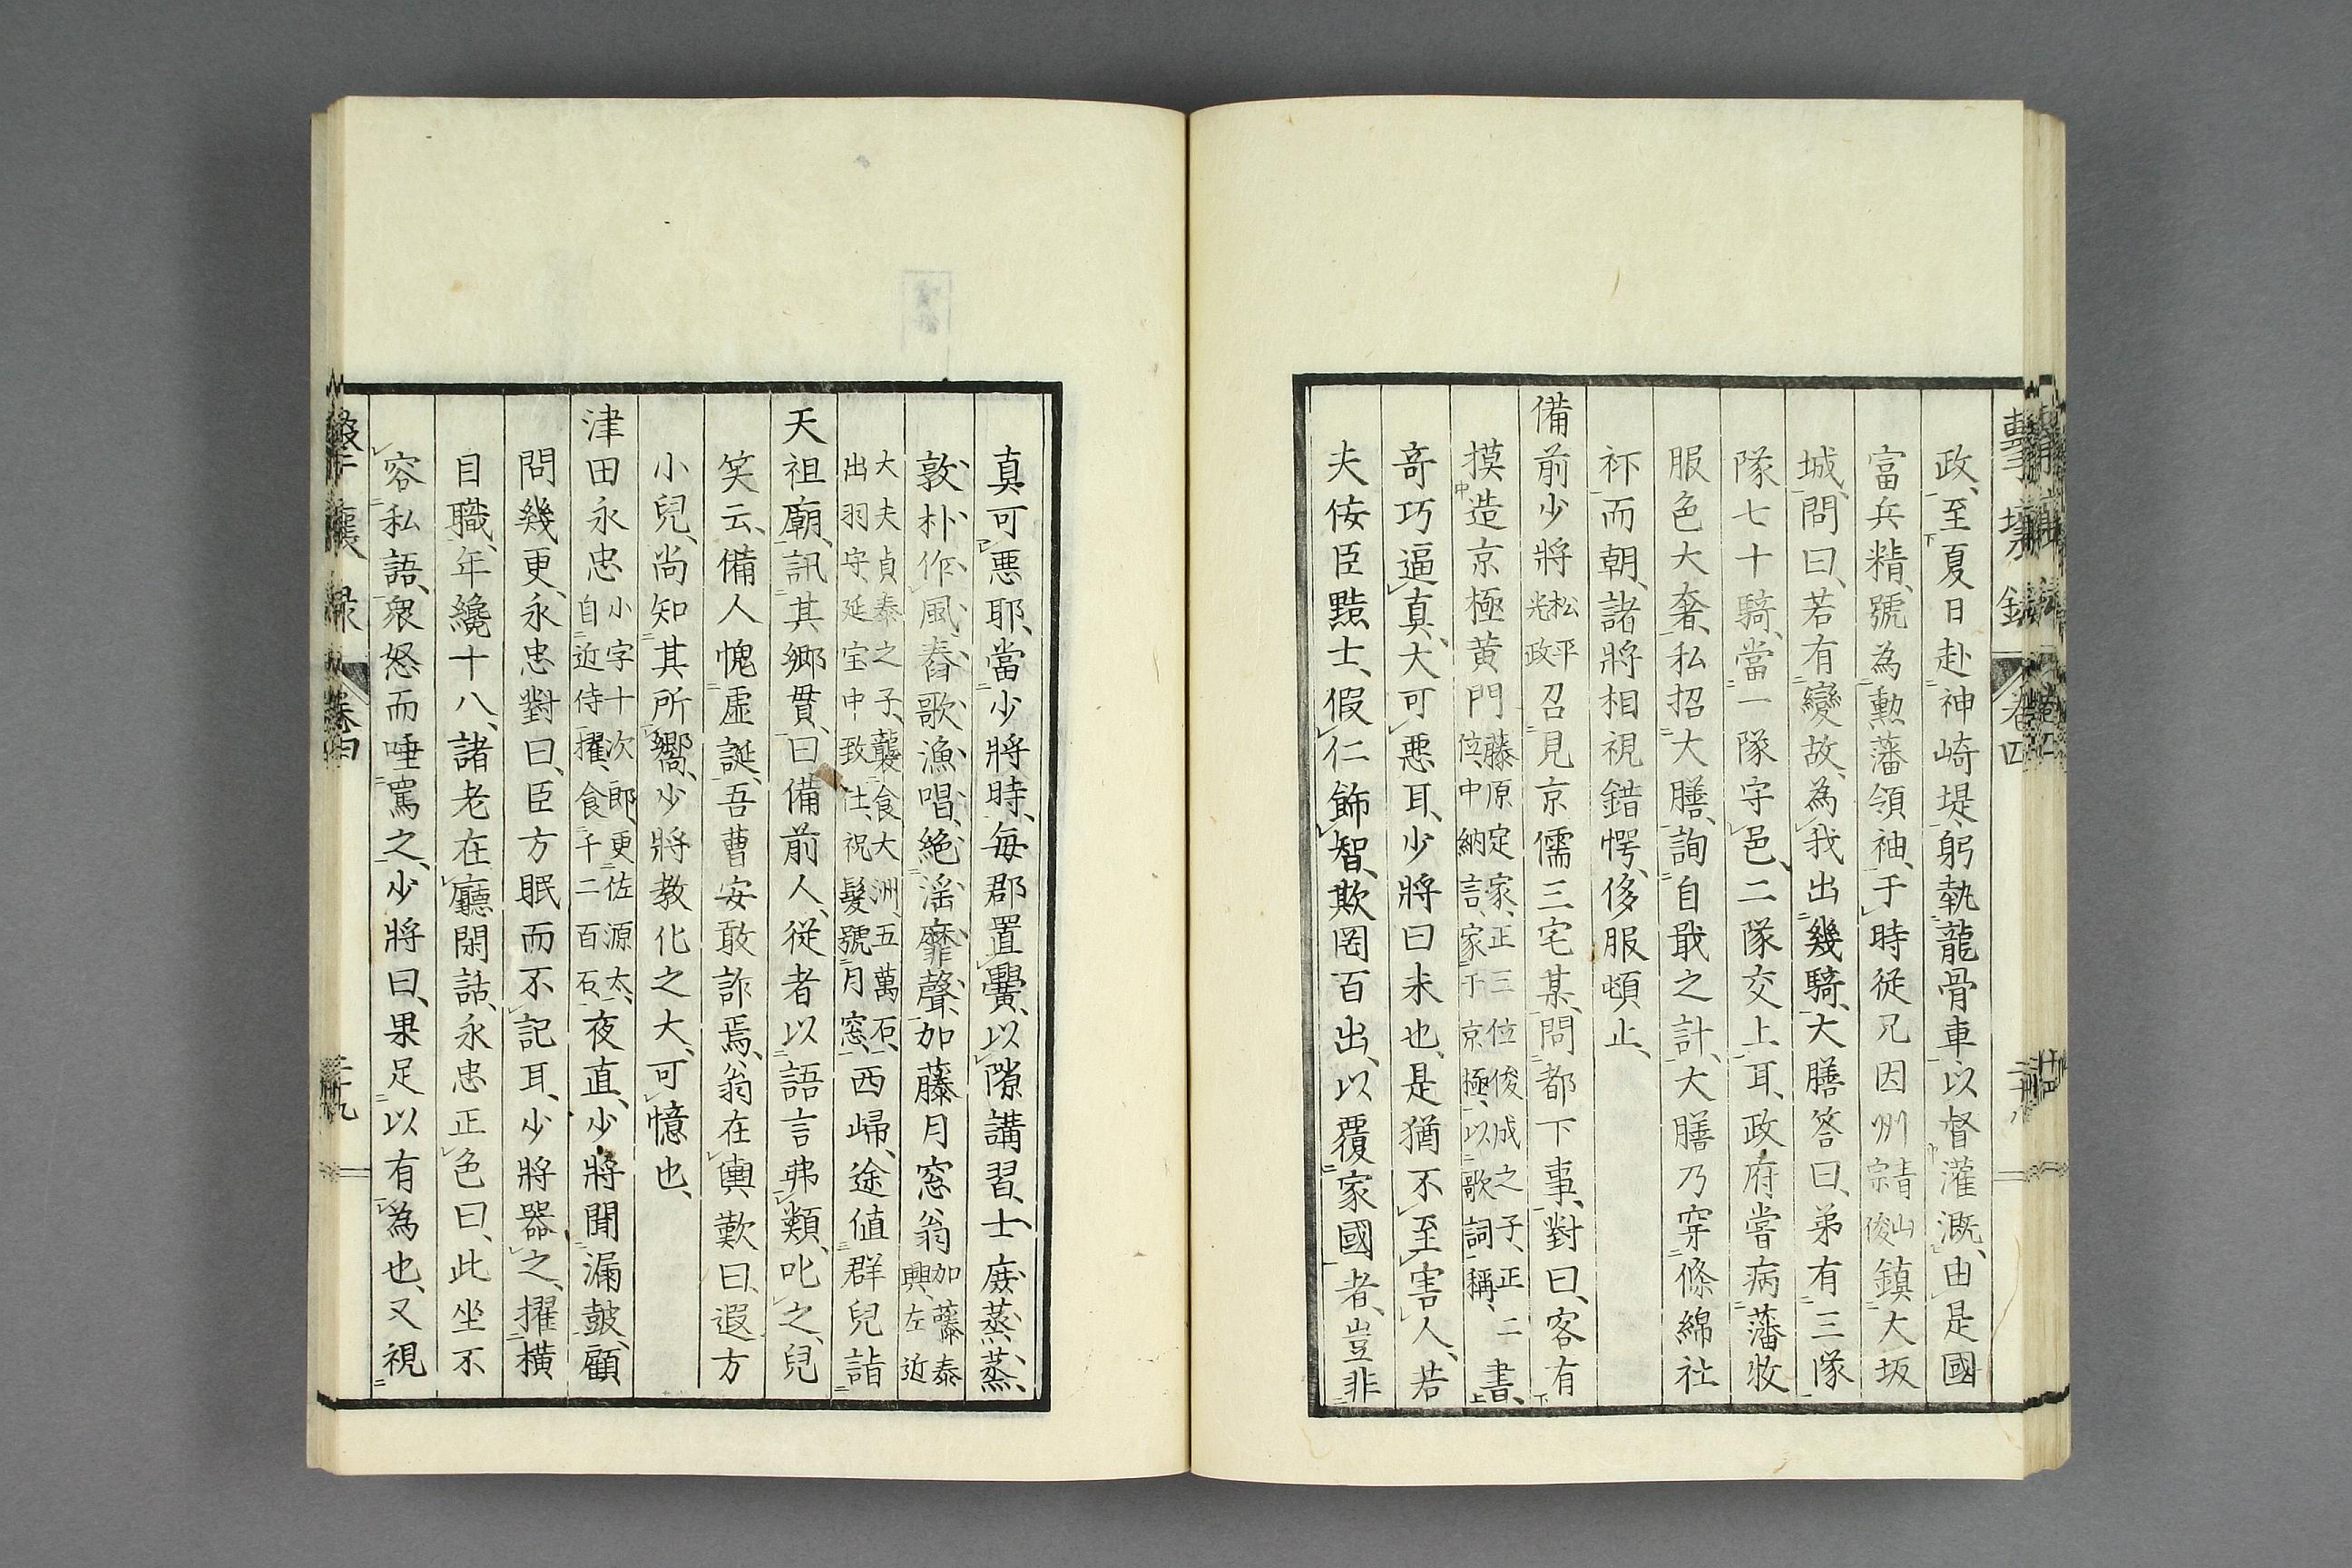 擊壤錄
卷四
二十八
政、至夏日赴神崎堤、躬執龍骨車、以督灌漑、由是國
富兵精、號為勳藩領袖、于時從兄因州青山宗俊鎮大坂
城、問曰、若有變故、為我出幾騎、大膳答曰、弟有三隊
隊七十騎、當一隊守邑、二隊交上耳、政府嘗病藩牧
服色大奢、私招大膳、詢自戢之計、大膳乃穿條綿社
衦而朝、諸將相視錯愕、侈服頓止、
備前少將松平光政召見京儒三宅某、問都下事、對曰、客有
摸造京極黄門藤原定家、正三位俊成之子、正二位、中納言、家于京極、以歌詞稱、書、
奇巧逼真、大可悪耳、少將曰未也、是猶不至害人、若
夫侫臣黠士、假仁飾智、欺罔百出、以覆家國者、豈非
真可悪耶、當少將時、每郡置黌、以隙講習、士庶蒸蒸、
敦朴作風、舂歌漁唱、絶滛靡聲、加藤月窓翁加藤泰興、左近
大夫貞泰之子、襲食大洲、五萬石、出羽守、延宝中致仕、祝髮號月窓、西歸、途値群兒詣
天祖廟、訊其鄉貫、曰備前人、從者以語言弗類、叱之、兒
笑云、備人愧虛誕、吾曹安敢詐焉、翁在輿歎曰、遐方
小兒、尚知其所嚮、少將教化之大、可憶也、
津田永忠小字十次郎、更佐源太、自近侍擢、食千二百石、夜直、少將聞漏皷、顧
問幾更、永忠對曰、臣方眠而不記耳、少將器之、擢横
目職、年纔十八、諸老在廳閑話、永忠正色曰、此坐不
容私語、衆怒而唾罵之、少將曰、果足以有為也、又視
擊壤錄
卷四
二十九